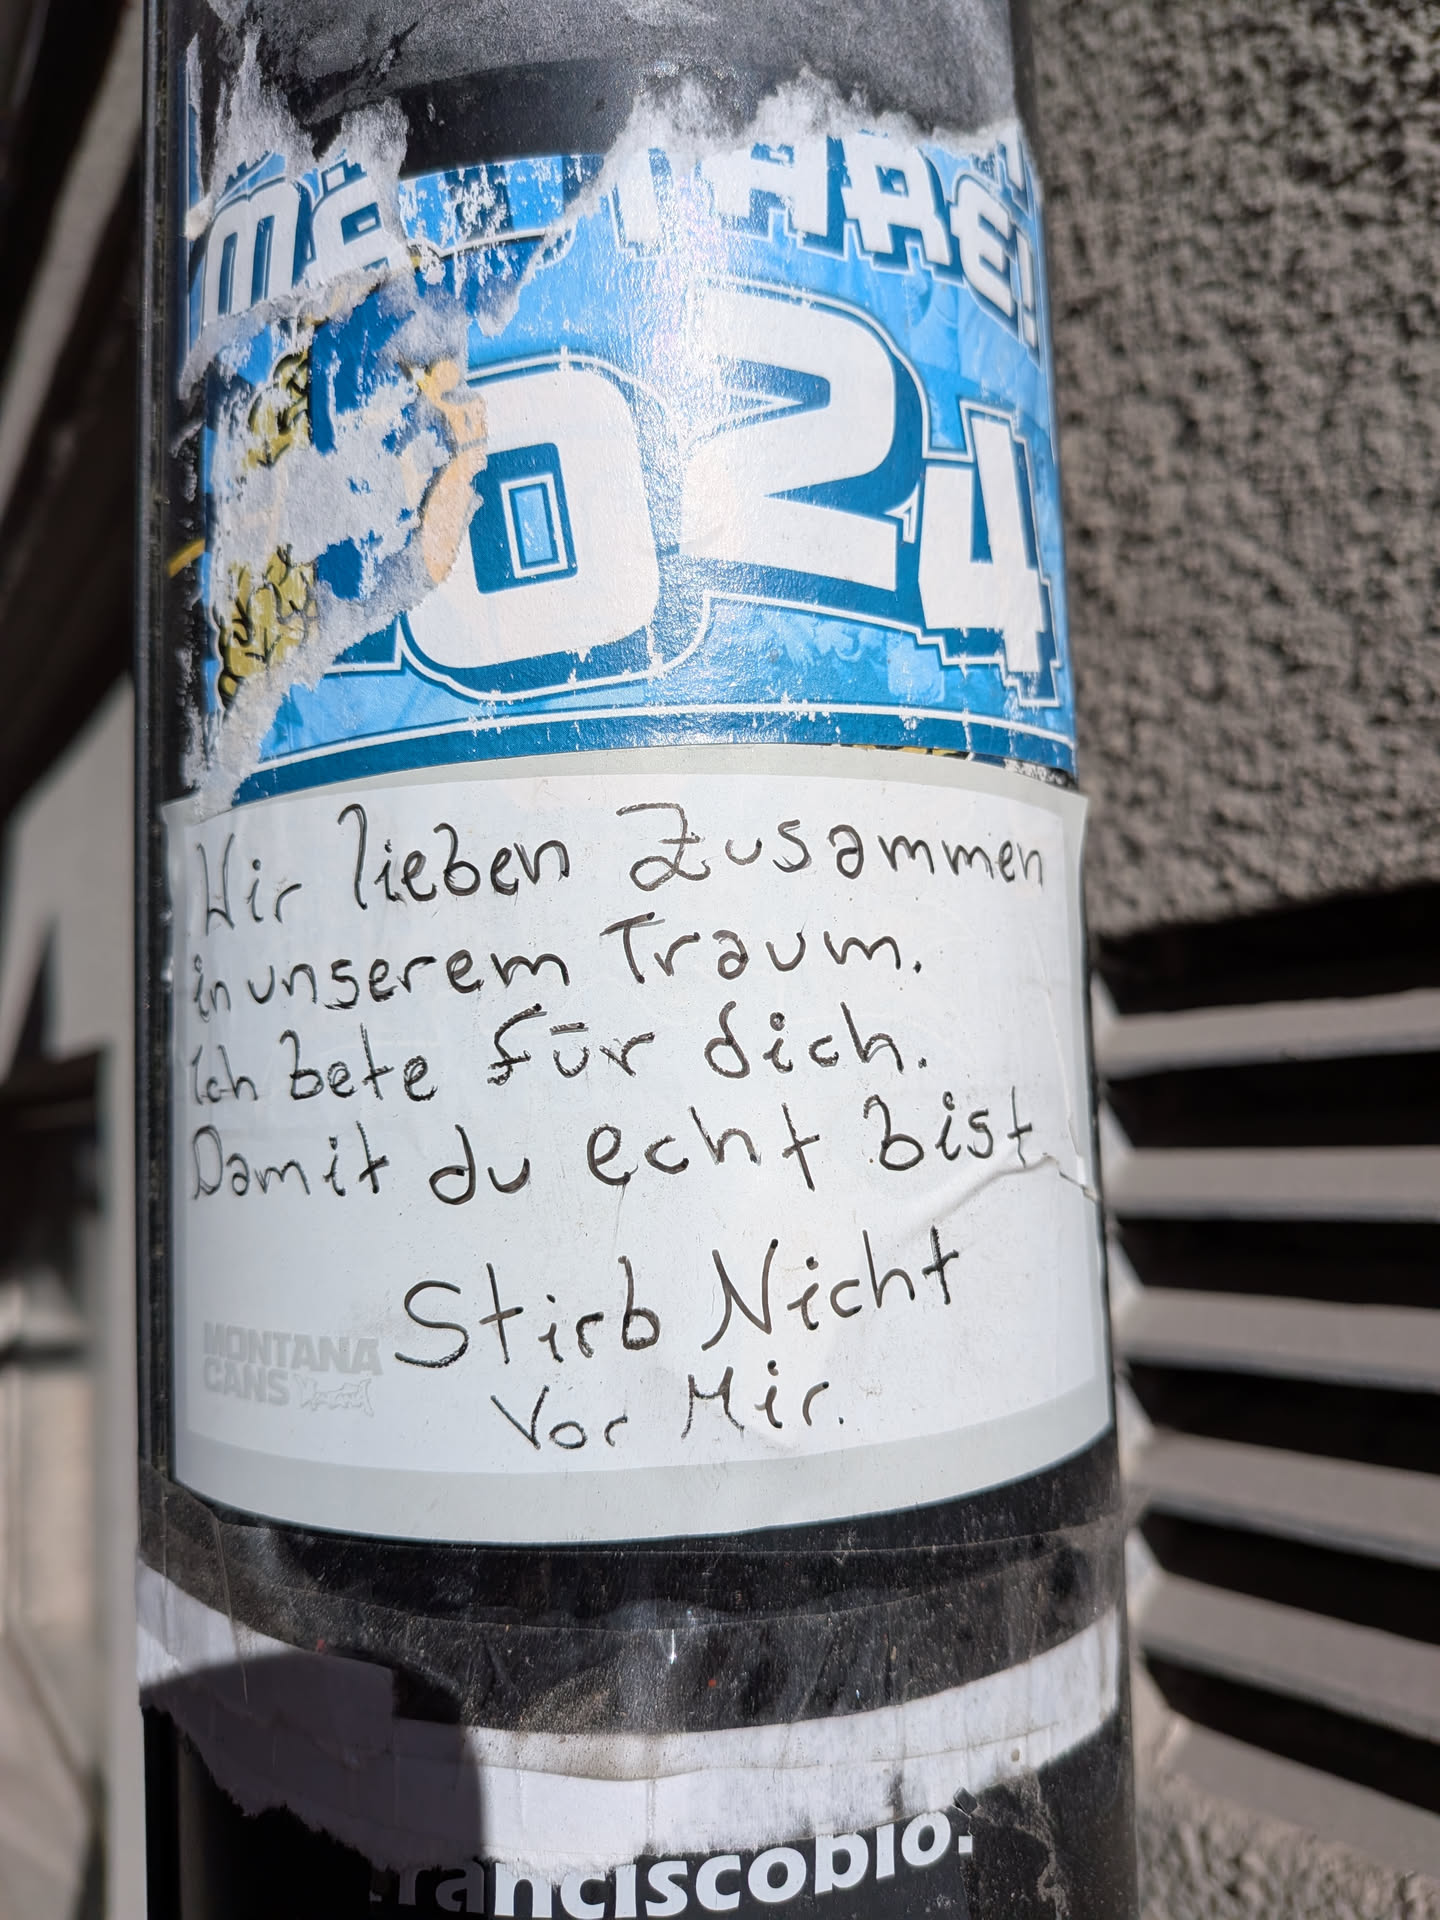 THARE!
024
Wir lieben Zusammen
in unserem Traum.
ich bete für dich.
Damit du echt bist
Stirb Nicht
Vor Mir.
MONTANA
CANS
ranciscobio.